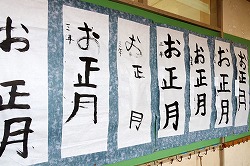 お正月
お正月
お正月
お正月
お正月
お正月
お正月